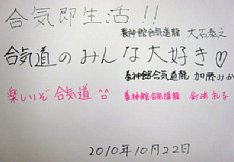 合気即生活!!
養神館合気道龍 大石
合気道のみんな大好き♡
養神館合気道龍 加藤
楽しいぞ 合気道 ^^
養神館合気道龍
2010年10月22日